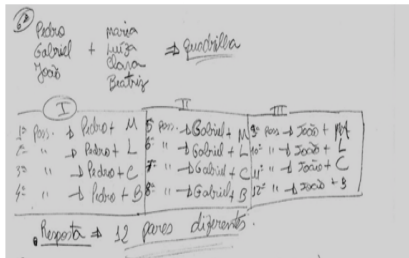 6ª
Pedro Maria
Gabriel + Luiza ⇒ Quadrilha
João Clara
Beatriz
I II III
1ª Poss. → Pedro + M 5ª poss. → Gabriel + M 9ª poss → João + M
2ª " → Pedro + L 6ª " → Gabriel + L 10ª " → João + L
3ª " → Pedro + C 7ª " → Gabriel + C 11ª " → João + C
4ª " → Pedro + B 8ª " → Gabriel + B 12ª " → João + B
Resposta ⇒ 12 pares diferentes.